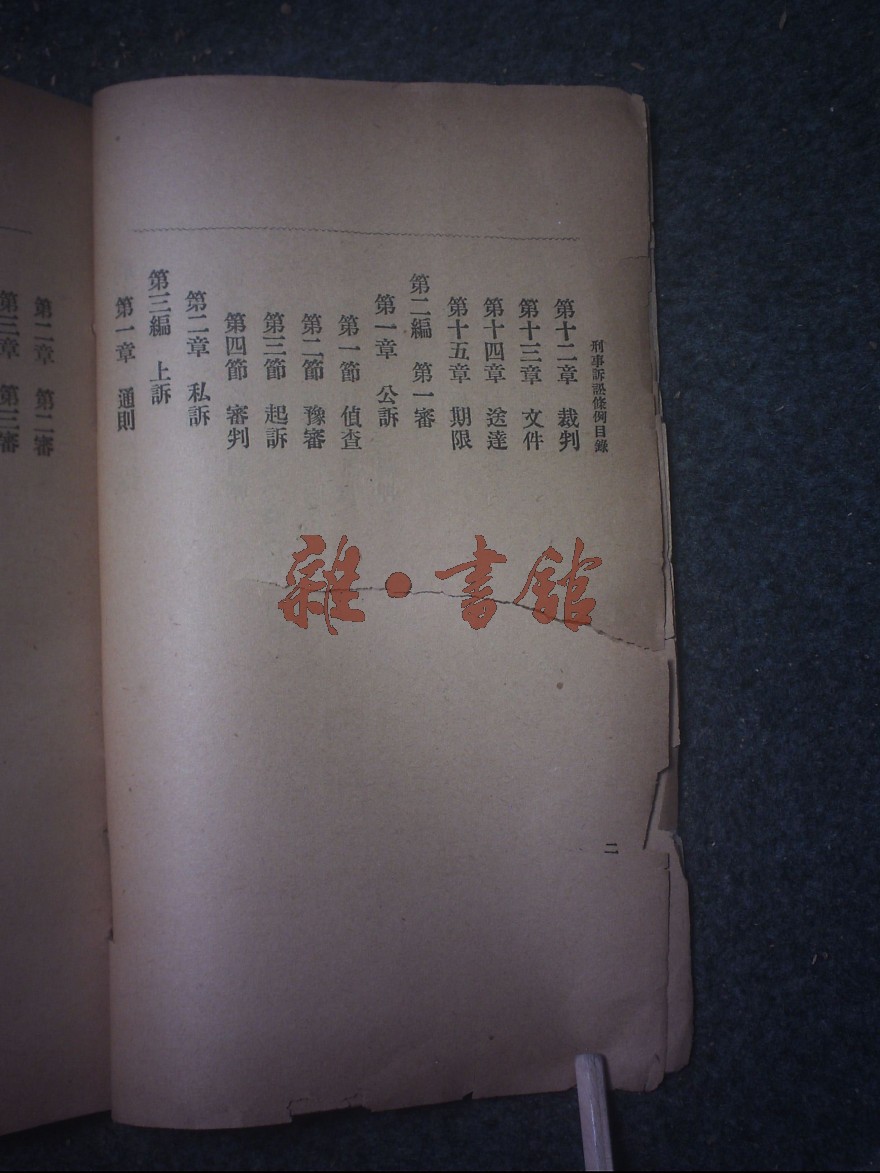 刑事訴訟條例目錄
第十二章 裁判
第十三章 文件
第十四章 送達
第十五章 期限
第二編 第一審
第一章 公訴
第一節 偵查
第二節 豫審
第三節 起訴
第四節 審判
第二章 私訴
第三編 上訴
第一章 通則
二
第二章 第二審
第三章 第三審
雜·書館